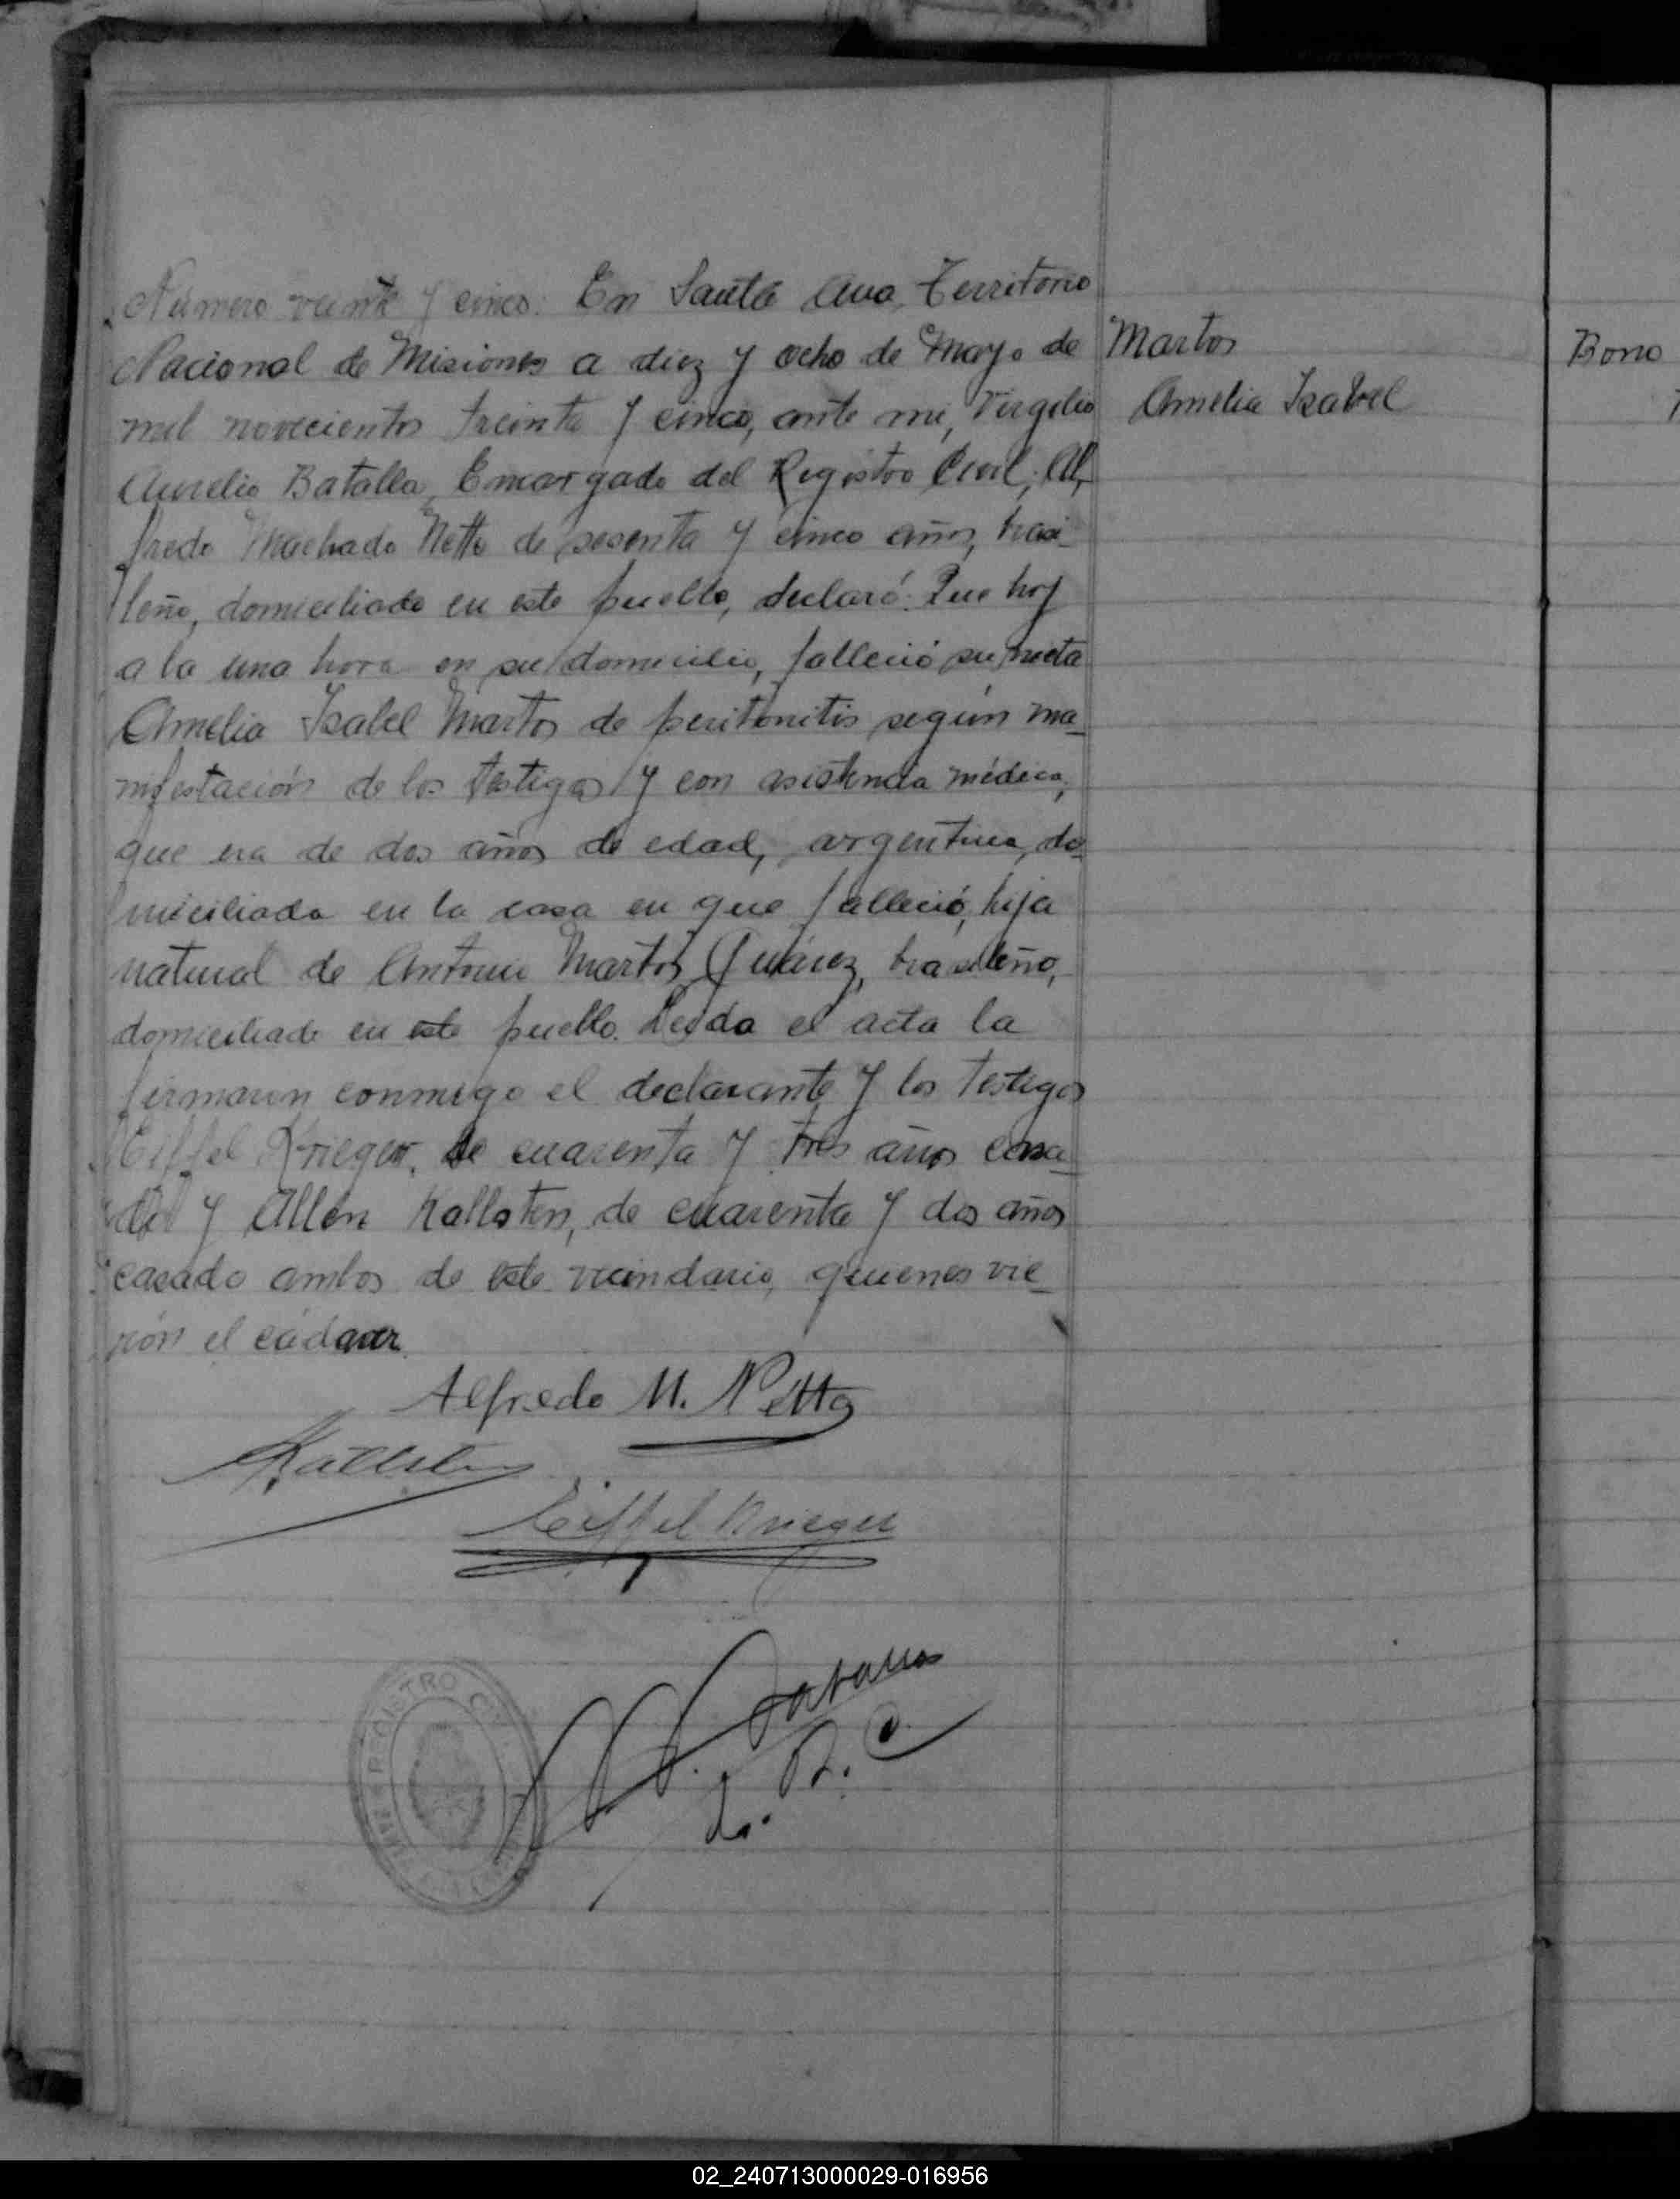 Número veinte y cinco. En Santa Ana, Territorio
Nacional de Misiones a diez y ocho de Mayo de
mil novecientos treinta y cinco, ante mi, Virgilio
Aurelio Batalla, Encargado del Registro Civil, Al-
fredo Machado Netto de sesenta y cinco años, brasi-
leño, domiciliado en este pueblo, declaró: Que hoy
a la una hora en su domicilio, falleció su nieta
Amelia Isabel Martos de peritonitis según ma-
nifestación de los testigos y con asistencia médica,
que era de dos años de edad, argentina, do-
miciliada en la casa en que falleció, hija
natural de Antonio Martos Juárez, brasileño,
domiciliado en este pueblo. Leida el acta la
firmaron conmigo el declarante y los testigos
Eiffel Krieger, de cuarenta y tres años casa-
do y Allan Kallsten, de cuarenta y dos años
casado ambos de este vecindario, quienes vie-
rón el cádaver.
Martos
Amelia Isabel
Alfredo M. Netto
Kallsten
Eiffel Krieger
REGISTRO
R. C.
Bono
02_240713000029-016956